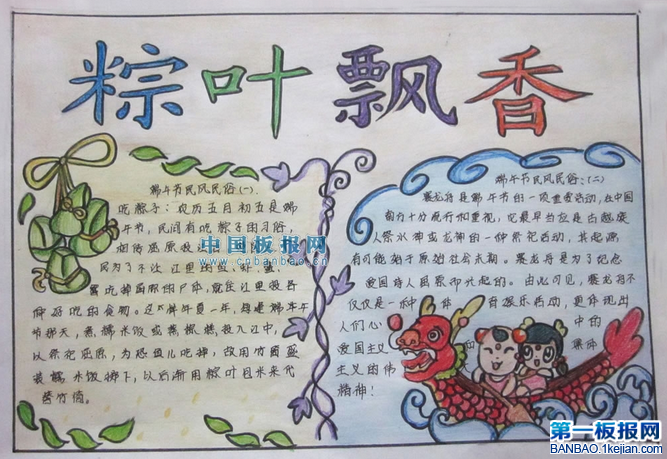 粽叶飘香
端午节民风民俗(一)
吃粽子:农历五月初五是端
午节,民间有吃粽子的习俗,
相传屈原投江
民为了不让江里的鱼、虾、
吃掉屈原的尸体,就往江里投各
种品吃的食物。这样年复一年,
节那天,
以祭祀屈原,为恐鱼儿吃掉,故用竹筒盛
装糯米饭掷下,以后渐用粽叶包米来代
替竹筒。
端午节民风民俗:(二)
赛龙舟是端午节的一项重要活动,在中国
南方十分流行和重视,它最早当应是古越族
人祭水神或龙神的一种祭祀活动,其起源
有可能始于原始社会末期。赛龙舟是为了纪念
爱国诗人屈原而兴起的。由此可见,赛龙舟不
仅仅是一种体育娱乐活动,更体现出
人们心中的
爱国主义和集体
主义的伟
精神!
中国板报网
http://www.1kejian.com/banbao
第一板报网
BANBAO.1kejian.com